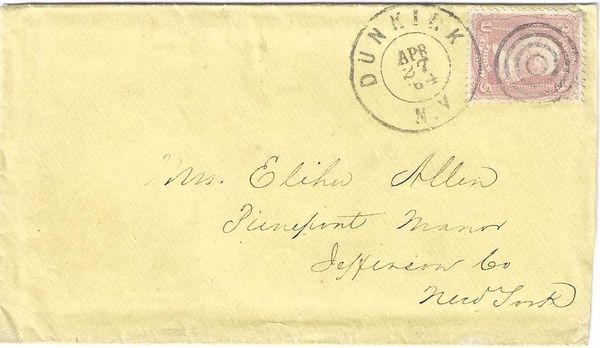 DUNKIRK
APR
27
64
N.Y
U S
Mrs. Elihu Allen
Pierrepont Manor
Jefferson Co
New York